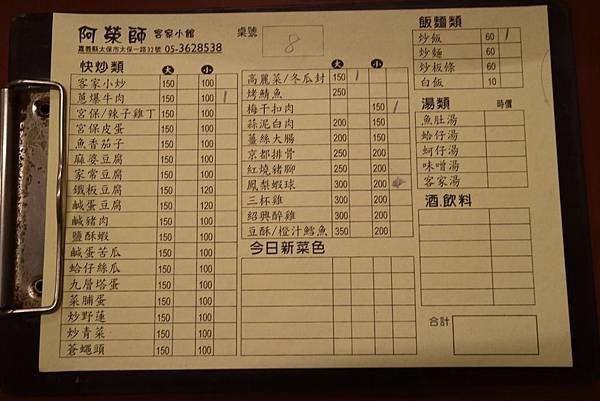 阿榮師 客家小館
嘉義縣太保市太保一路32號 05-3628538
桌號 8
快炒類 大 小
客家小炒 150 100
蔥爆牛肉 150 100 1
宮保/辣子雞丁 150 100
宮保皮蛋 150 100
魚香茄子 150 100
麻婆豆腐 150 100
家常豆腐 150 100
鐵板豆腐 150 120
鹹蛋豆腐 150 120
鹹豬肉 150 100
鹽酥蝦 150 100
鹹蛋苦瓜 150 100
蛤仔絲瓜 150 100
九層塔蛋 150 100
菜脯蛋 150 100
炒野蓮 150 100
炒青菜 150 100
蒼蠅頭 150 100
大 小
高麗菜/冬瓜封 150 1
烤鯖魚 250
梅干扣肉 150 1
蒜泥白肉 200 150
薑絲大腸 200 150
京都排骨 250 200
紅燒豬腳 250 200
鳳梨蝦球 300 200
三杯雞 300 200
紹興醉雞 300 200
豆酥/橙汁鱈魚 350 200
今日新菜色
飯麵類
炒飯 60 1
炒麵 60
炒板條 60
白飯 10
湯類 時價
魚肚湯
蛤仔湯
蚵仔湯
味噌湯
客家湯
酒.飲料
合計